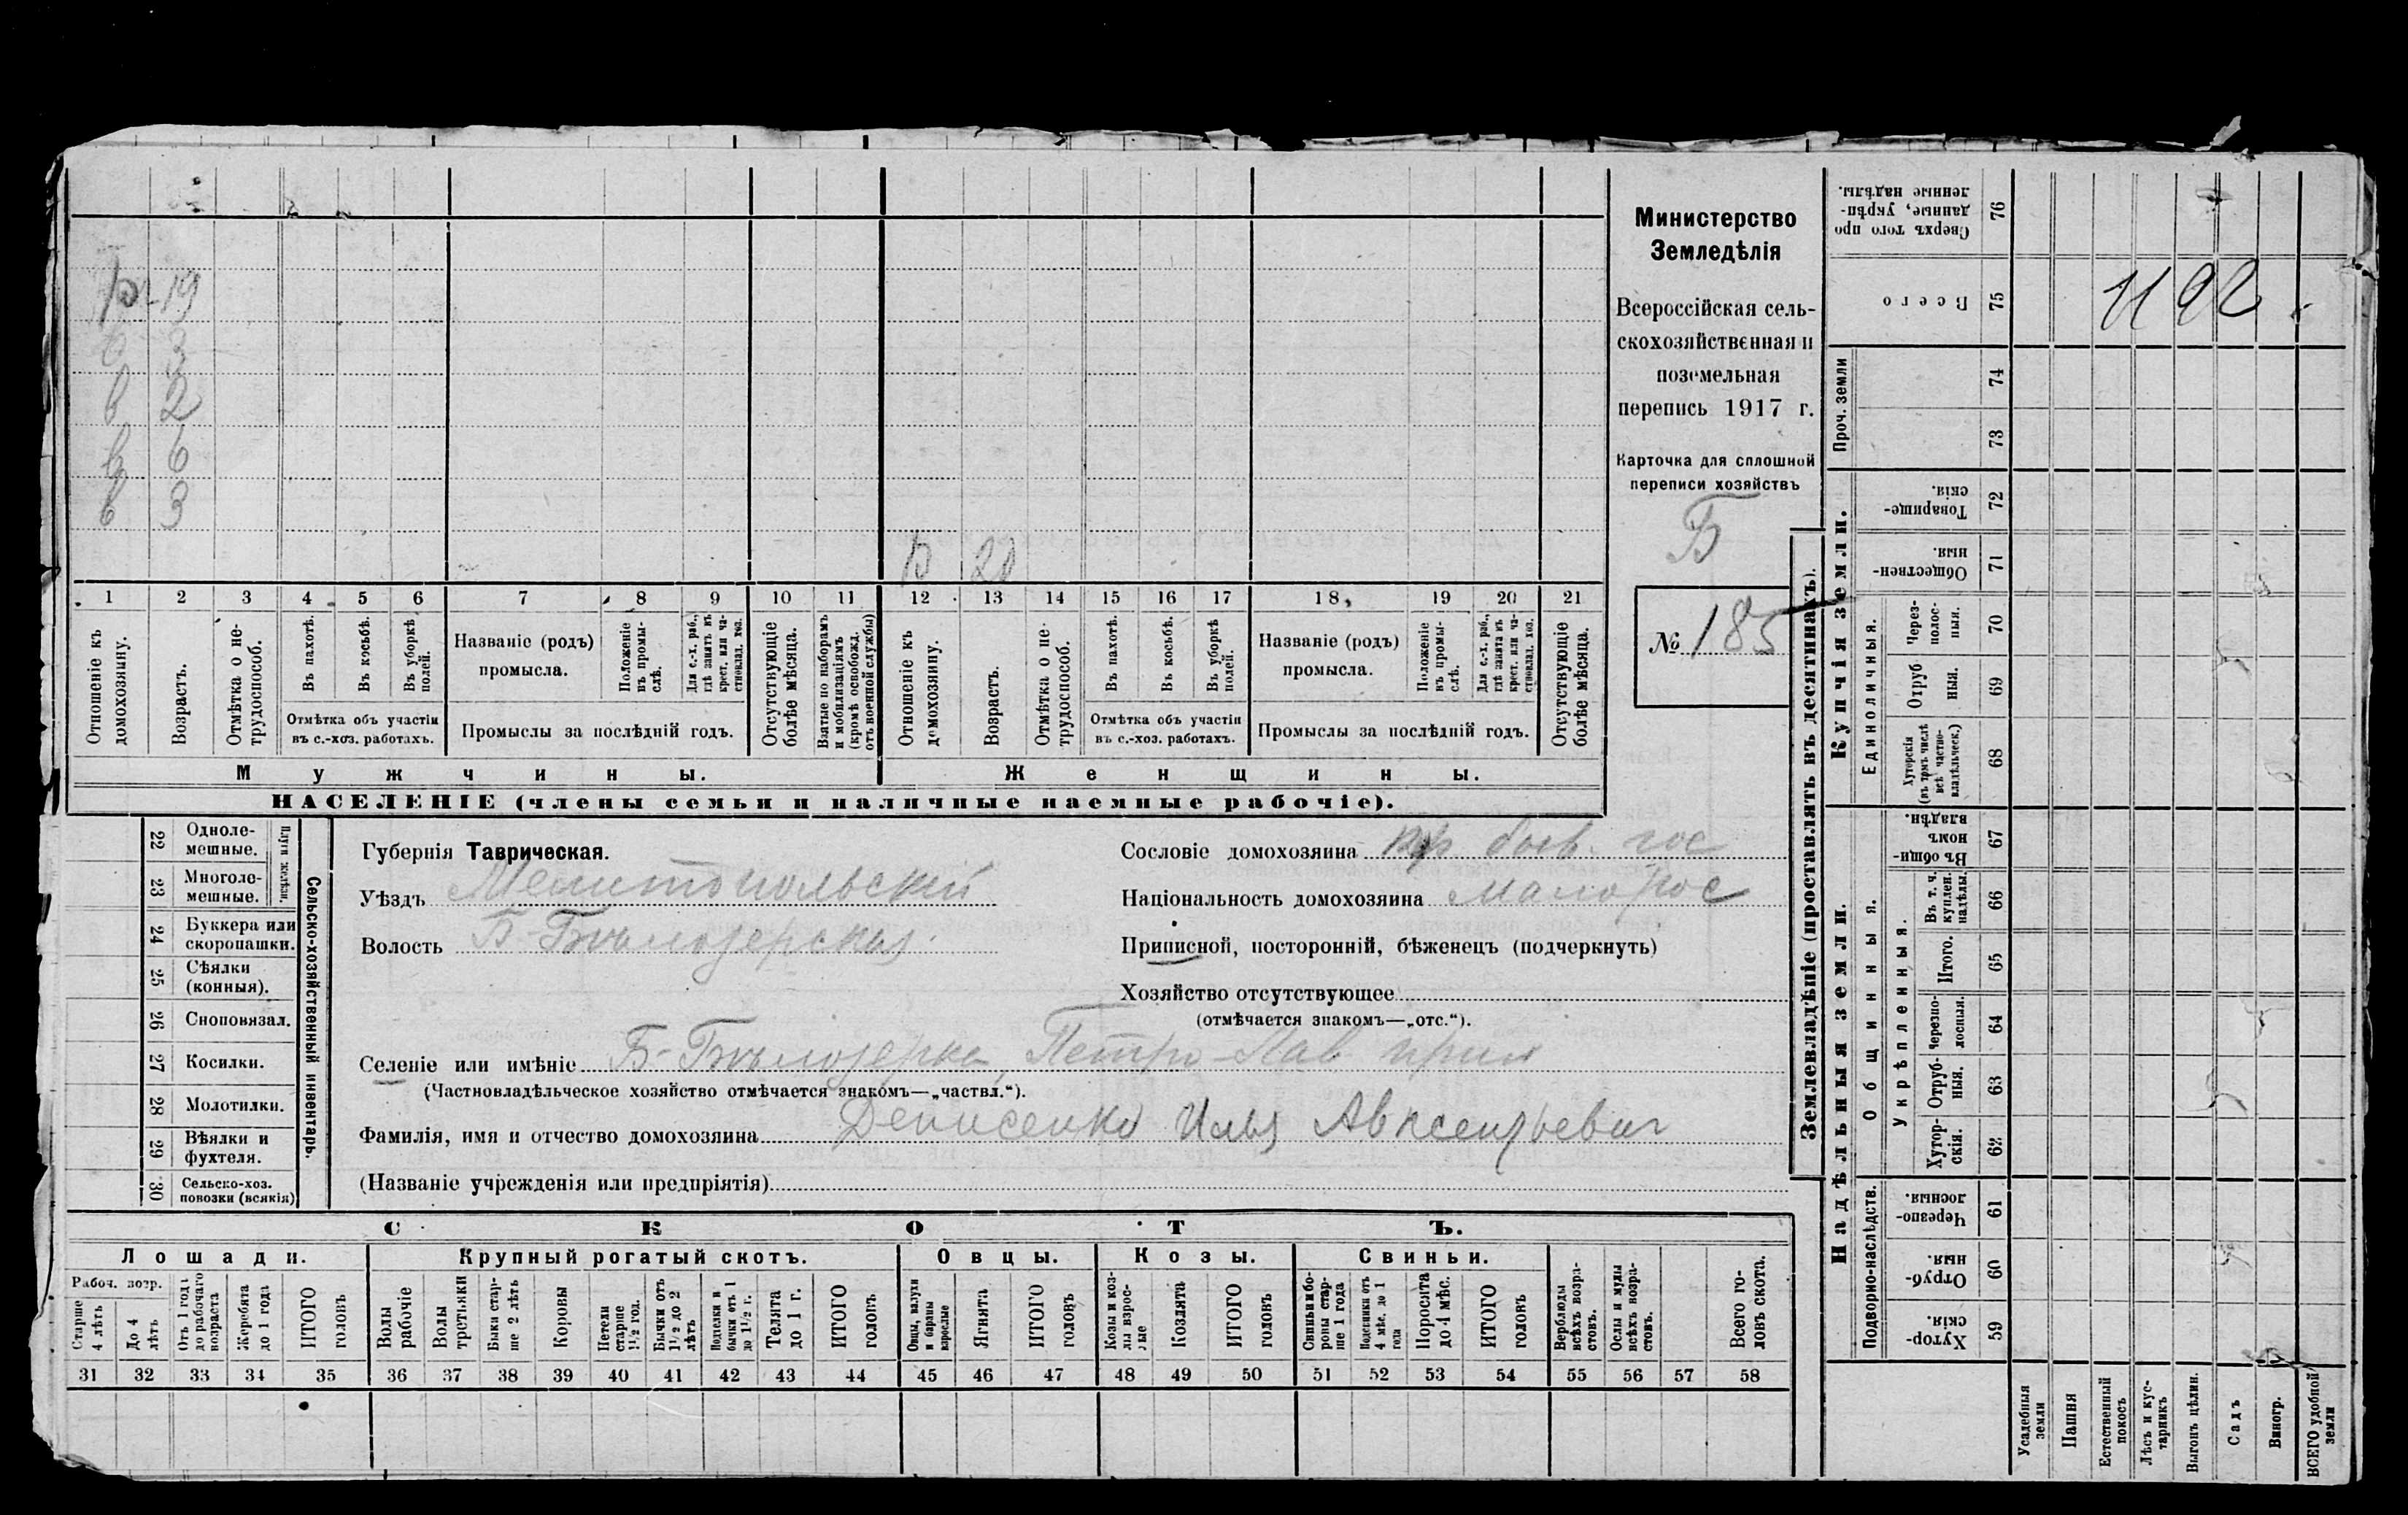 19
3
в 2
в 6
в 3
20
1 2 3 4 5 6 7 8 9 10 11 12 13 14 15 16 17 18 19 20 21
Отношеніе къ домохозяину.
Возрастъ.
Отмѣтка о нетрудоспособ.
Въ пахотѣ.
Въ косьбѣ.
Въ уборкѣ полей.
Отмѣтка объ участіи въ с.-хоз. работахъ.
Названіе (родъ) промысла.
Положеніе въ промыслѣ.
Для с.-х. раб., гдѣ занятъ въ крест. или частновлад. хоз.
Промыслы за послѣдній годъ.
Отсутствующіе болѣе мѣсяца.
Взятые по наборамъ и мобилизаціямъ (кромѣ освобожд. отъ военной службы)
Отношеніе къ домохозяину.
Возрастъ.
Отмѣтка о нетрудоспособ.
Въ пахотѣ.
Въ косьбѣ.
Въ уборкѣ полей.
Отмѣтка объ участіи въ с.-хоз. работахъ.
Названіе (родъ) промысла.
Положеніе въ промыслѣ.
Для с.-х. раб., гдѣ занята въ крест. или частновлад. хоз.
Промыслы за послѣдній годъ.
Отсутствующіе болѣе мѣсяца.
Мужчины.
Женщины.
НАСЕЛЕНІЕ (члены семьи и наличные наемные рабочіе).
Министерство
Земледѣлія
Всероссійская сель-
скохозяйственная и
поземельная
перепись 1917 г.
Карточка для сплошной
переписи хозяйствъ
Б
№ 185
22 Одноле-
мешные.
23 Многоле-
мешные.
Плуги желѣзн.
24 Буккера или
скоропашки.
25 Сѣялки
(конныя).
26 Сноповязал.
27 Косилки.
28 Молотилки.
29 Вѣялки и
фухтеля.
30 Сельско-хоз.
повозки (всякія)
Сельско-хозяйственный инвентарь.
Губернія Таврическая.
Уѣздъ Мелитопольскій
Волость Б-Бѣлозерская
Сословіе домохозяина кр быв. гос
Національность домохозяина малорос
Приписной, посторонній, бѣженецъ (подчеркнуть)
Хозяйство отсутствующее
(отмѣчается знакомъ—„отс.“).
Селеніе или имѣніе Б-Бѣлозерка, Петро-Пав прих
(Частновладѣльческое хозяйство отмѣчается знакомъ—„частвл.“).
Фамилія, имя и отчество домохозяина Денисенко Илья Авксентьевич
(Названіе учрежденія или предпріятія)
СКОТЪ.
Лошади. Крупный рогатый скотъ. Овцы. Козы. Свиньи.
Рабоч. возр.
Старше 4 лѣтъ
До 4 лѣтъ
Отъ 1 года до рабочаго возраста
Жеребята до 1 года
ИТОГО головъ
Волы рабочіе
Волы третьяки
Быки старше 2 лѣтъ
Коровы
Нетели старше 1½ год.
Бычки отъ 1½ до 2 лѣтъ
Подтелки и бычки отъ 1 до 1½ г.
Телята до 1 г.
ИТОГО головъ.
Овцы, валухи и бараны взрослые
Ягнята
ИТОГО головъ
Козы и козлы взрослые
Козлята
ИТОГО головъ
Свиньи и боровы старше 1 года
Подсвинки отъ 4 мѣс. до 1 года
Поросята до 4 мѣс.
ИТОГО головъ
Верблюды всѣхъ возрастовъ.
Ослы и мулы всѣхъ возрастовъ.
Всего головъ скота.
31 32 33 34 35 36 37 38 39 40 41 42 43 44 45 46 47 48 49 50 51 52 53 54 55 56 57 58
Землевладѣніе (проставлять въ десятинахъ).
Сверхъ того проданные, укрѣпленные надѣлы. 76
Всего 75 1192
Проч. земли
74
73
Купчія земли.
Товарищескія. 72
Общественныя. 71
Единоличныя.
Черезполосныя. 70
Отрубныя. 69
Хуторскія (въ томъ числѣ всѣ частновладѣльческ.) 68
Надѣльныя земли.
Общинныя.
Въ общинномъ владѣн. 67
Укрѣпленныя.
Въ т. ч. куплен. надѣлы. 66
Итого. 65
Черезполосныя. 64
Отрубныя. 63
Хуторскія. 62
Подворно-наслѣдств.
Черезполосныя. 61
Отрубныя. 60
Хуторскія. 59
Усадебныя земли
Пашня
Естественный покосъ
Лѣсъ и кустарникъ
Выгонъ цѣлин.
Садъ
Виногр.
ВСЕГО удобной земли